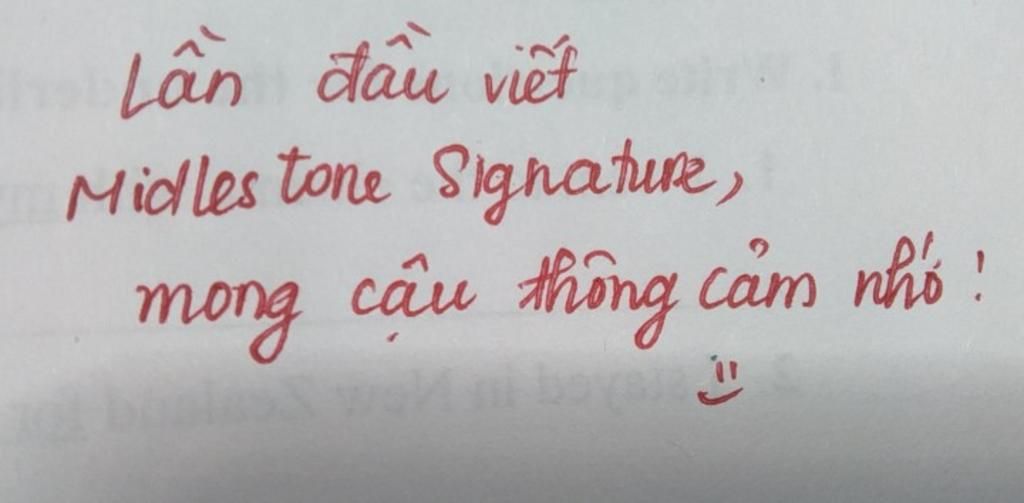 Lần đầu viết
Midlestone Signature,
mong cậu thông cảm nhó!